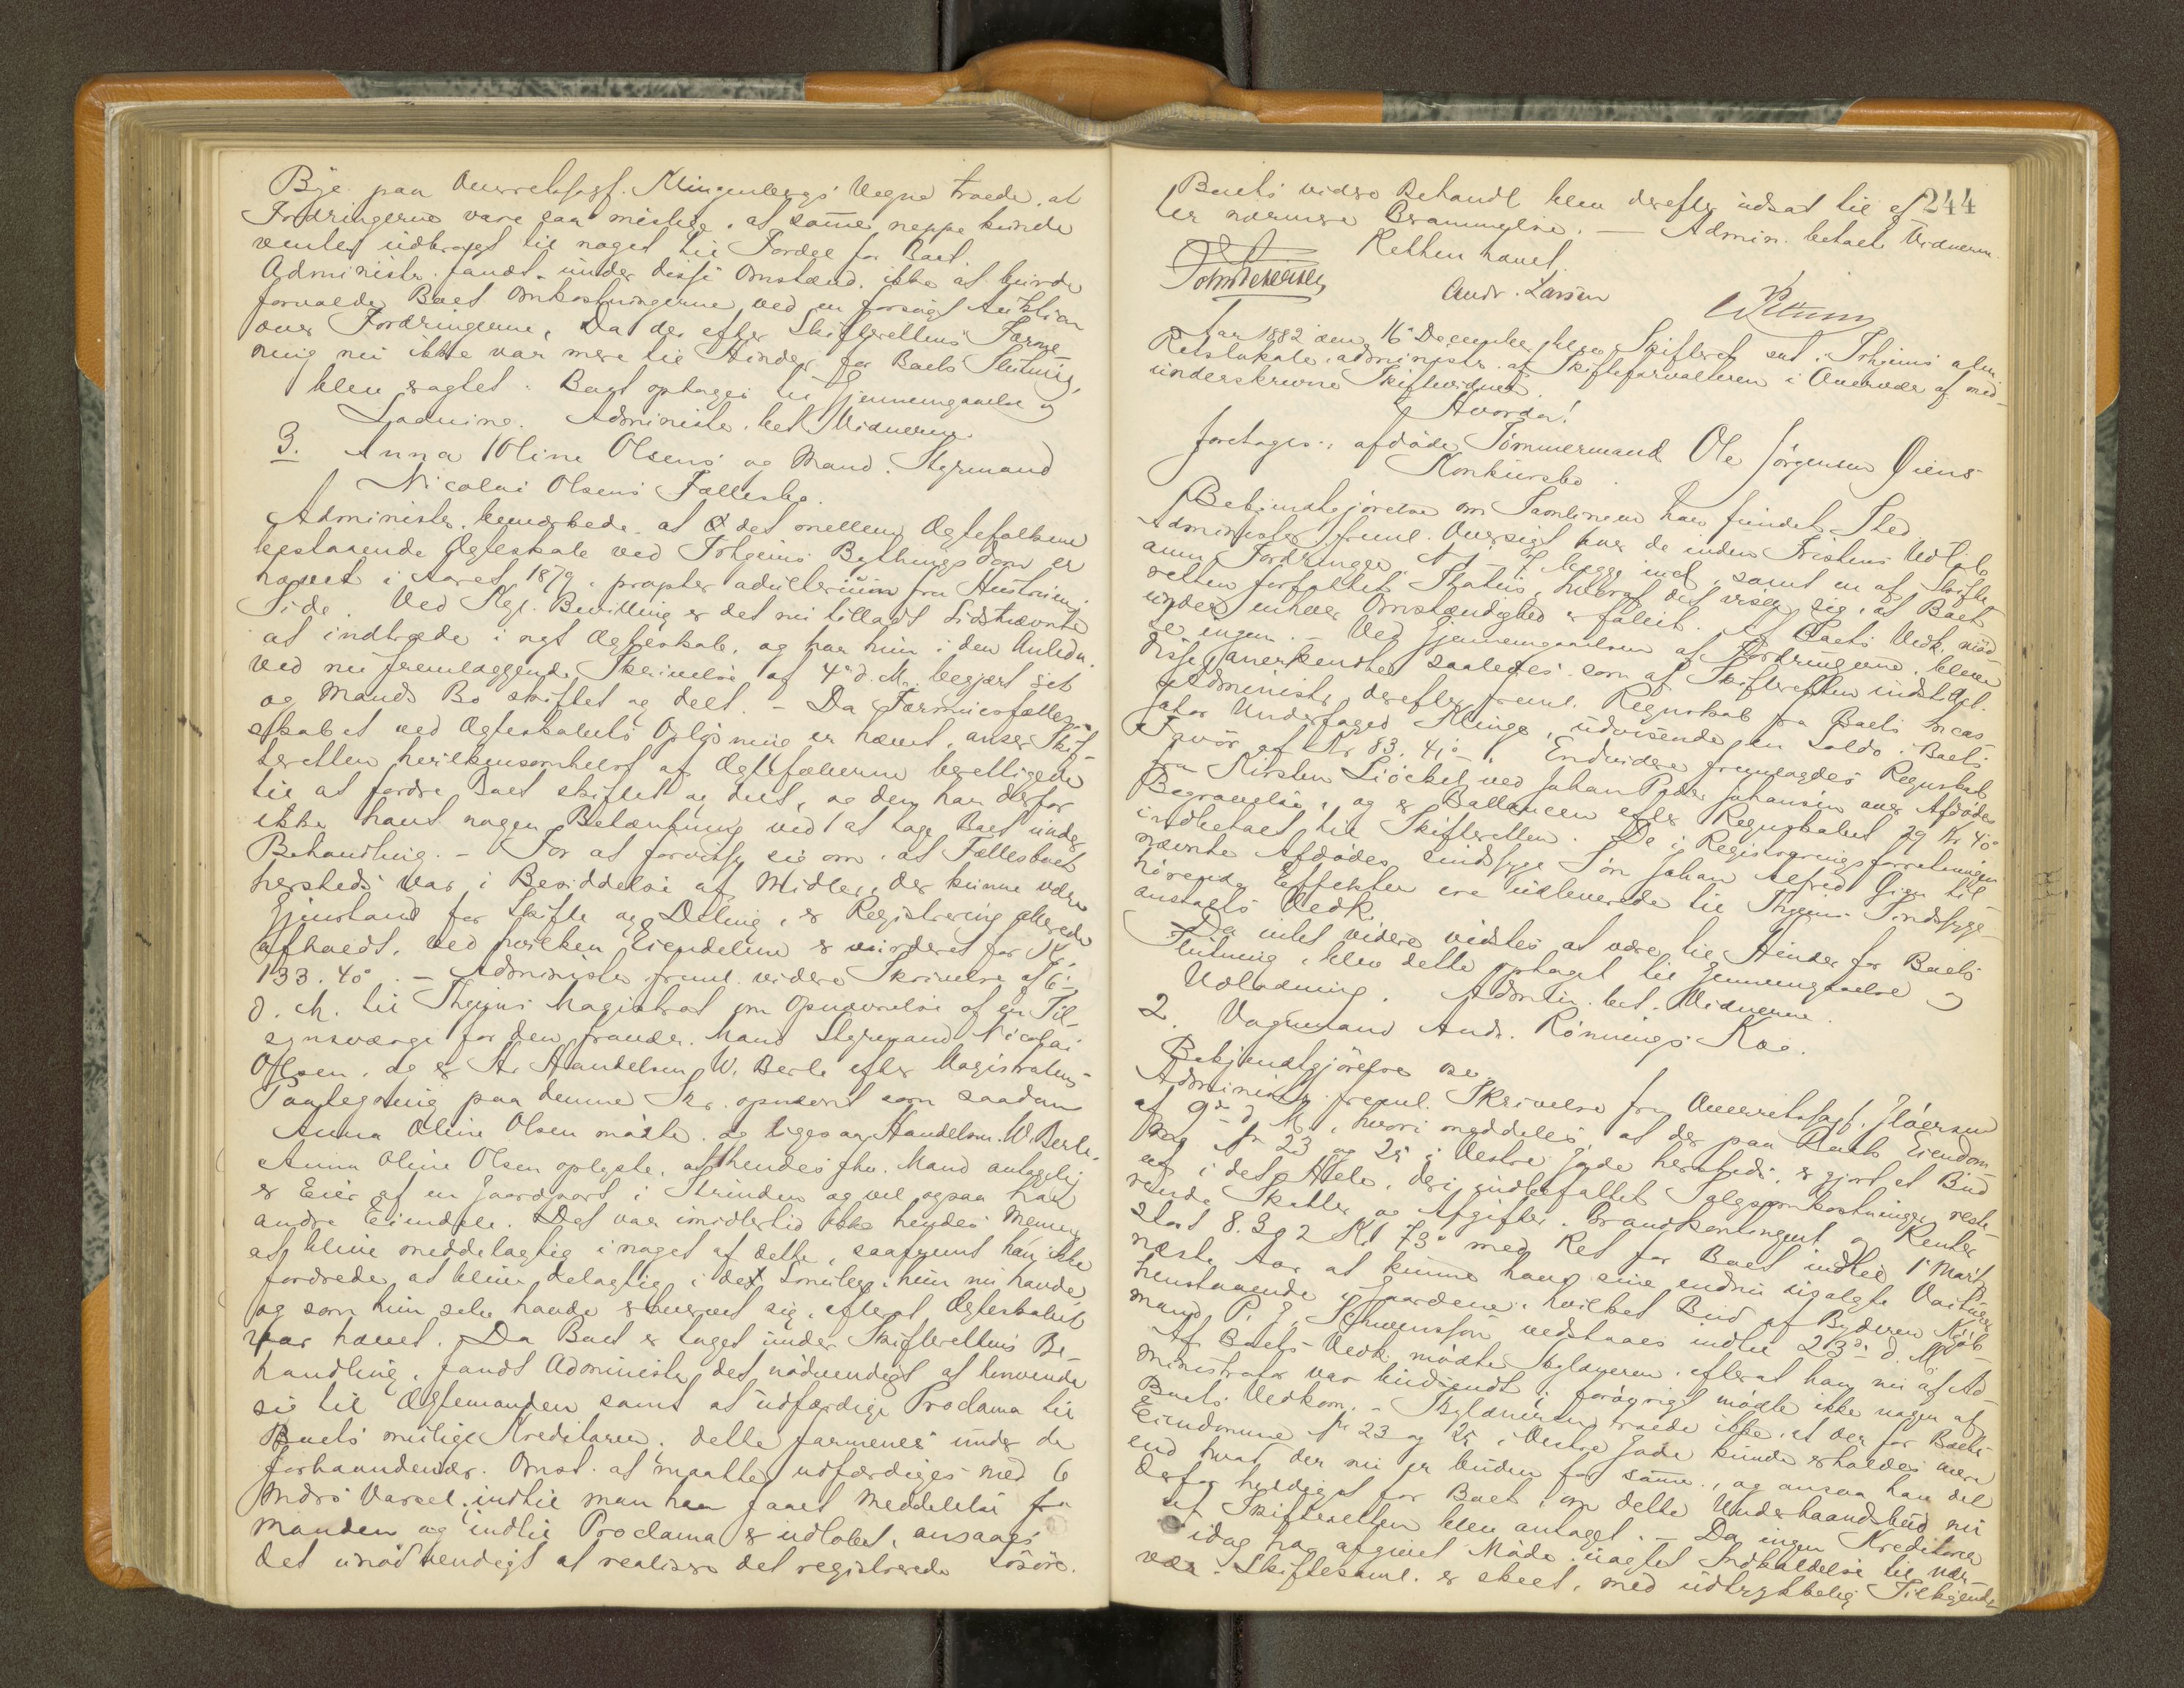 Bye paa Overretssagf. Klingenbergs Vegne troede, at
Fordringerne vare saa mislige, at same neppe kunde
ventes udbragt til noget til Fordel for Boet.
Administr. fandt under disse Omstænd. ikke at burde
forvolde Boet Omkostningerne ved en forsøgt Auktion
over Fordringerne. Da der efter Skifterettens Forme
ning nu ikke var mere til Hinder for Boets Slutning,
blev sagtet Boet optaget til Gjennemgaaelse og
Ladning. Administr. bet. Vidnerne.
3. Anna Oline Olsens og Mand, Styrmand
Nicolai Olsens Fællesbo.
Administr. bemærkede, at det mellem Ægtefolkene
bestaaende Ægteskab ved Trhjems Bythings Dom er
hævet i Aaret 1879, propter adulterium fra Hustruens
Side. Ved Kgl. Bevilling er det nu tilladt Sidstnævnte
at indtræde i nyt Ægteskab, og har hun i den Anledn.
ved nu fremlæggende Skrivelse af 4de d. M. begjært sit
og Mands Bo skiftet og delt. – Da Formuesfælles
skabet ved Ægteskabets Opløsning er hævet, anser Skif
teretten hvilkensomhelst af Ægtefællerne berettiget
til at fordre Boet skiftet og delt, og den har derfor
ikke havt nogen Betænkning ved at tage Boet under
Behandling. – For at forvisse sig om, at Fællesboet
hersteds var i Besiddelse af Midler, der kunne være
Gjenstand for Skifte og Deling, er Registrering allerede
afholdt, ved hvilken Eiendelene er vurderet for Kr.
133. 40 – Administr. freml. videre Skrivelse af 6
d. M. til Thjems Magistrat om Opnævnelse af en Til-
synsværge for den fravær. Mand Styrmand Nicolai
Olsen, og er Hr. Handelsm. W. Berle efter Magistratens
Paategning paa denne Skr. opnævnt som saadan
Anna Oline Olsen mødte, og ligesaa Handelsm. W. Berle.
Anna Oline Olsen oplyste, at hendes fhv. Mand antagelig
er Eier af en Gaardpart i Strinden og vel ogsaa har
andre Eiendele. Det var imidlertid ikke hendes Mening
at blive meddelagtig i noget af dette, saafremt han ikke
fordrede at blive delagtig i det Smule, hun nu havde
og som hun selv havde erhvervet sig, efterat Ægteskabet
var hævet. Da Boet er taget under Skifterettens Be-
handling, fandt Administr. det nødvendigt at henvende
sig til Ægtemanden samt at udfærdige Proclama til
Boets mulige Kreditorer. Dette formenes under de
forhaandenvær. Omst. at maatte udfærdiges med 6
Mdrs Varsel, indtil man har faaet Meddelelse fra
Manden og indtil Proclama er udløbet, ansaaes
det unødvendigt at realisere det registrerede Løsøre.
244
Boets videre Behandl. blev derefter udsat til ef
ter nærmere Berammelse. – Admin. betalte Vidnerne
Retten hævet.
Andr. Larsen
Aar 1882 den 16de December blev Skifteret sat i Trhjems alm.
Retslokale, administr. af Skifteforvalteren i Overvær af med-
underskrevne Skiftevidner.
Hvorda!
foretages: afdøde Tømmermand Ole Jørgensen Øiens
Konkursbo.
Bekjendtgjørelse om Samlingen har fundet Sted
Administr. freml. Oversigt over de inden Fristens Udløb
anm. Fordringer. N. 1 – 7 begge incl., samt en af Skifte
retten forfattet Status, hvoraf det viser sig, at Boet
under enhver Omstændighed er fallit. – For Boets Vedk. mød-
te ingen. – Ved Gjennemgaaelsen af Fordringerne bleve
disse anerkjendte saaledes som af Skifteretten indstillet.
Administr. derefter freml. Regnskab fra Boets Incas
sator Underfoged Klinge, udvisende en Saldo i Boets
Favør af Kr 83. 41 Endvidere fremlagdes Regnskab
fra Kirsten Liøckel ved Johan Peder Johansen over Afdødes
Begravelse, og er Ballancen efter Regnskabet 29 Kr 40
indbetalt til Skifteretten. De i Registreringsforretningen
nævnte Afdødes sindssyge Søn Johan Alfred Øien til-
hørende Effekter ere udleverede til Trhjems Sindssyge-
anstalts Vedk.
Da intet videre vidstes at være til Hinder for Boets
Slutning, blev dette optaget til Gjennemgaaelse og
Udladning. Admin. bet. Vidnerne.
2. Vognmand Andr. Rønnings Kbo.
Bekjendtgjørelse se
Administr. freml. Skrivelse fra Overretssagf. Fløersen
af 9de d. M., hvori meddeles, at der paa Boets Eiendom
me Nr 23 og 25 i Vestre Gade hersteds, er gjort et Bud
af i det Hele, deri indbefattet Salgsomkostninger, reste-
rende Skatter og Afgifter, Brandkontingent og Renter
stort 8.392 Kr 73 med Ret for Boet indtil 1ste Marts
næste Aar at kunne have sine endnu usolgte Varer
henstaaende i Gaardene, hvilket Bud af Byderen Kjøb-
mand P. J. Schwensson vedstaaes indtil 23de d. M.
Af Boets Vedk. mødte Skyldneren, efterat han nu af Ad-
ministrator var budsendt, i forøvrigt mødte ikke nogen af
Boets Vedkom. – Skyldneren troede ikke, at der for Boets
Eiendomme Nr 23 og 25 i Vestre Gade kunde erholdes mere
end hvad der nu er buden for same, og ansaa han det
derfor heldigst for Boet, om dette Underhaandsbud nu
af Skifteretten blev antaget. – Da ingen Kreditorer
idag har afgivet Møde, uagtet Indkaldelse til nær-
vær. Skiftesaml. er skeet, med udtrykkelig Tilkjende